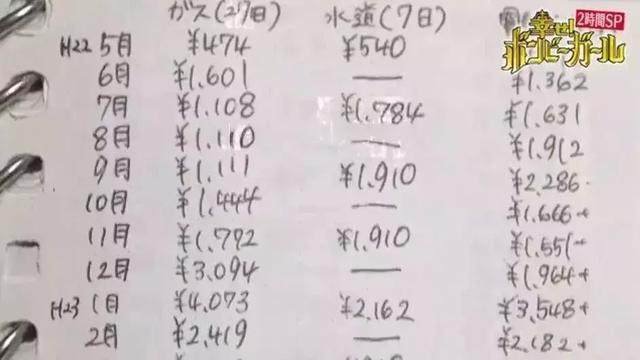 2時間SP
幸せ!
ボンビーガール
ガス(27日) 水道(7日)
H22 5月 ¥474 ¥540
6月 ¥1.601 — ¥1.362
7月 ¥1.108 ¥1.784 ¥1.631
8月 ¥1.110 — ¥1.912
9月 ¥1.111 ¥1.910 ¥2.286
10月 ¥1.444 — ¥1.666
11月 ¥1.792 ¥1.910 ¥1.551
12月 ¥3.094 — ¥1.964
H23 1月 ¥4.073 ¥2.162 ¥3.548
2月 ¥2.419 — ¥2.182